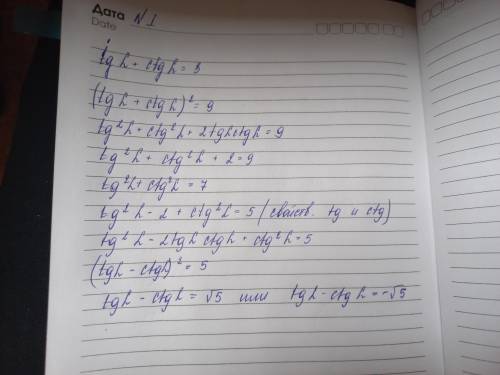 Дата N I
Date
tg α + ctg α = 3
(tg α + ctg α)² = 9
tg² α + ctg² α + 2 tg α ctg α = 9
tg² α + ctg² α + 2 = 9
tg² α + ctg² α = 7
tg² α - 2 + ctg² α = 5 (свойств. tg и ctg)
tg² α - 2 tg α ctg α + ctg² α = 5
(tg α - ctg α)² = 5
tg α - ctg α = √5 или tg α - ctg α = -√5